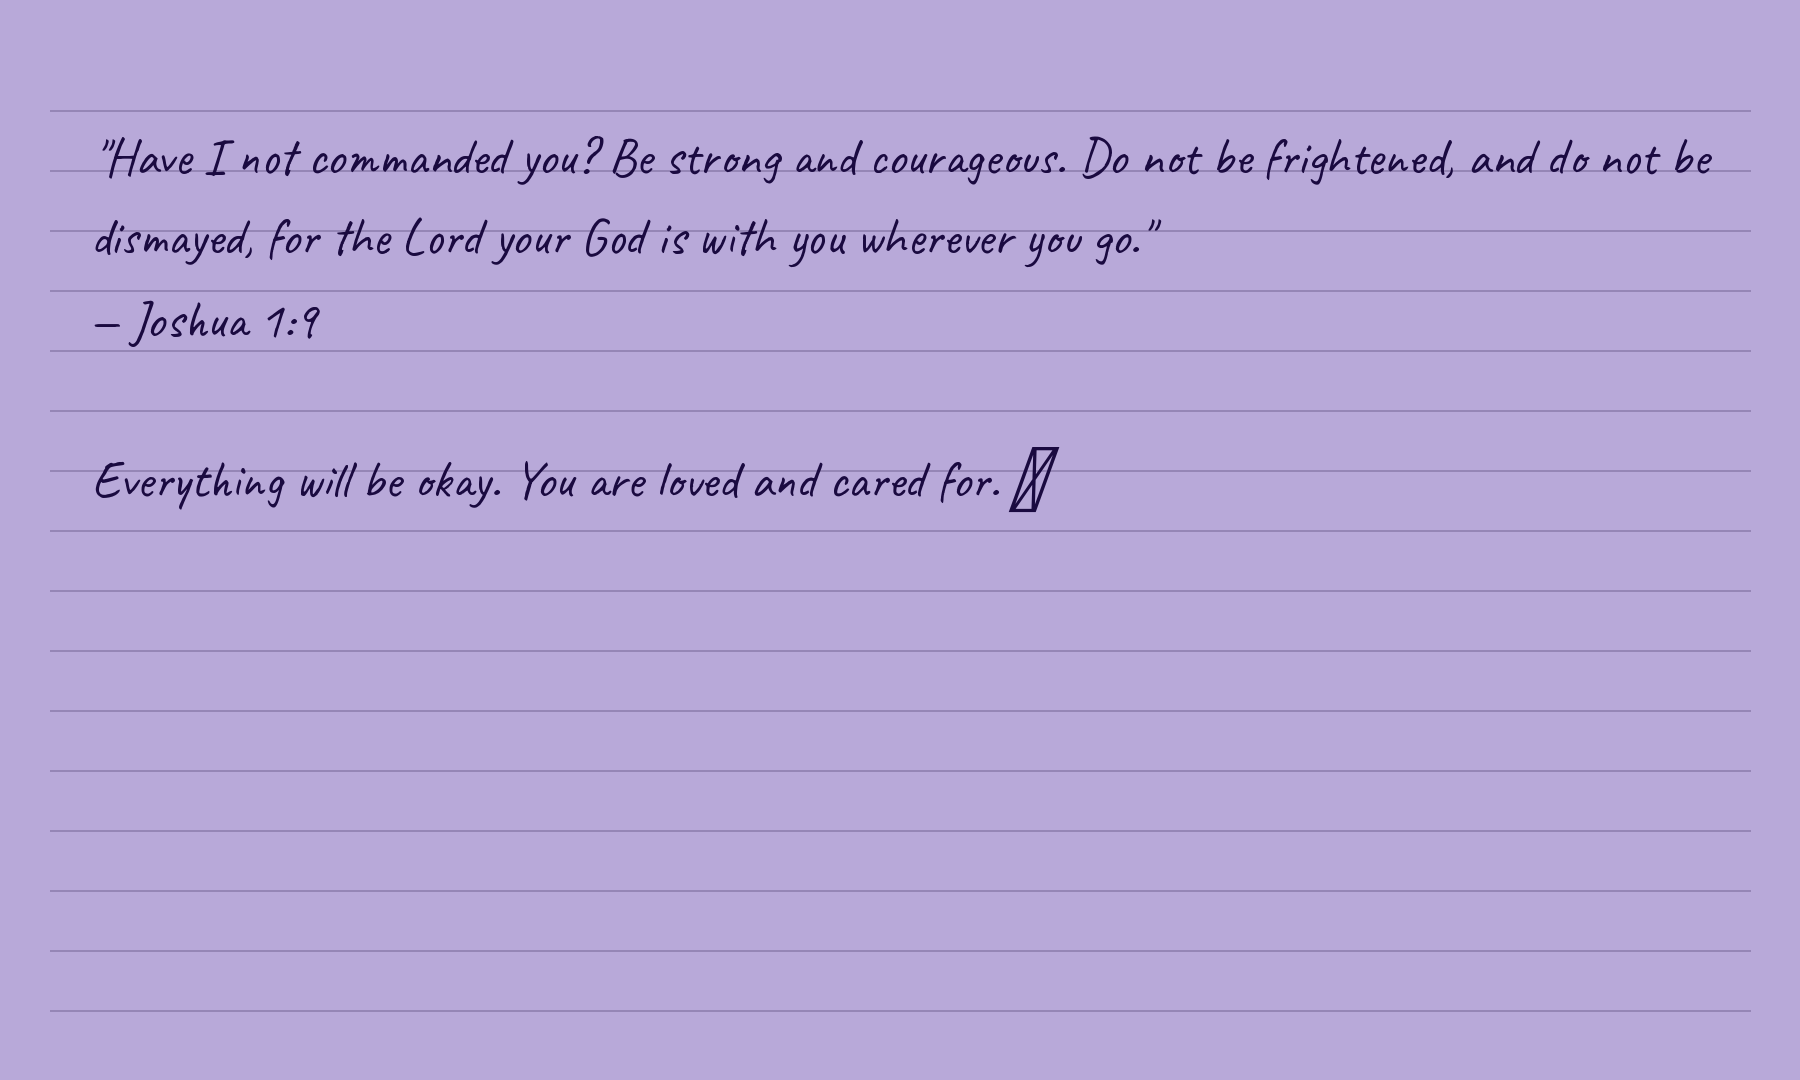 "Have I not commanded you? Be strong and courageous. Do not be frightened, and do not be
dismayed, for the Lord your God is with you wherever you go."
– Joshua 1:9
Everything will be okay. You are loved and cared for.